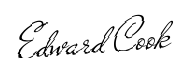 Edward Cook